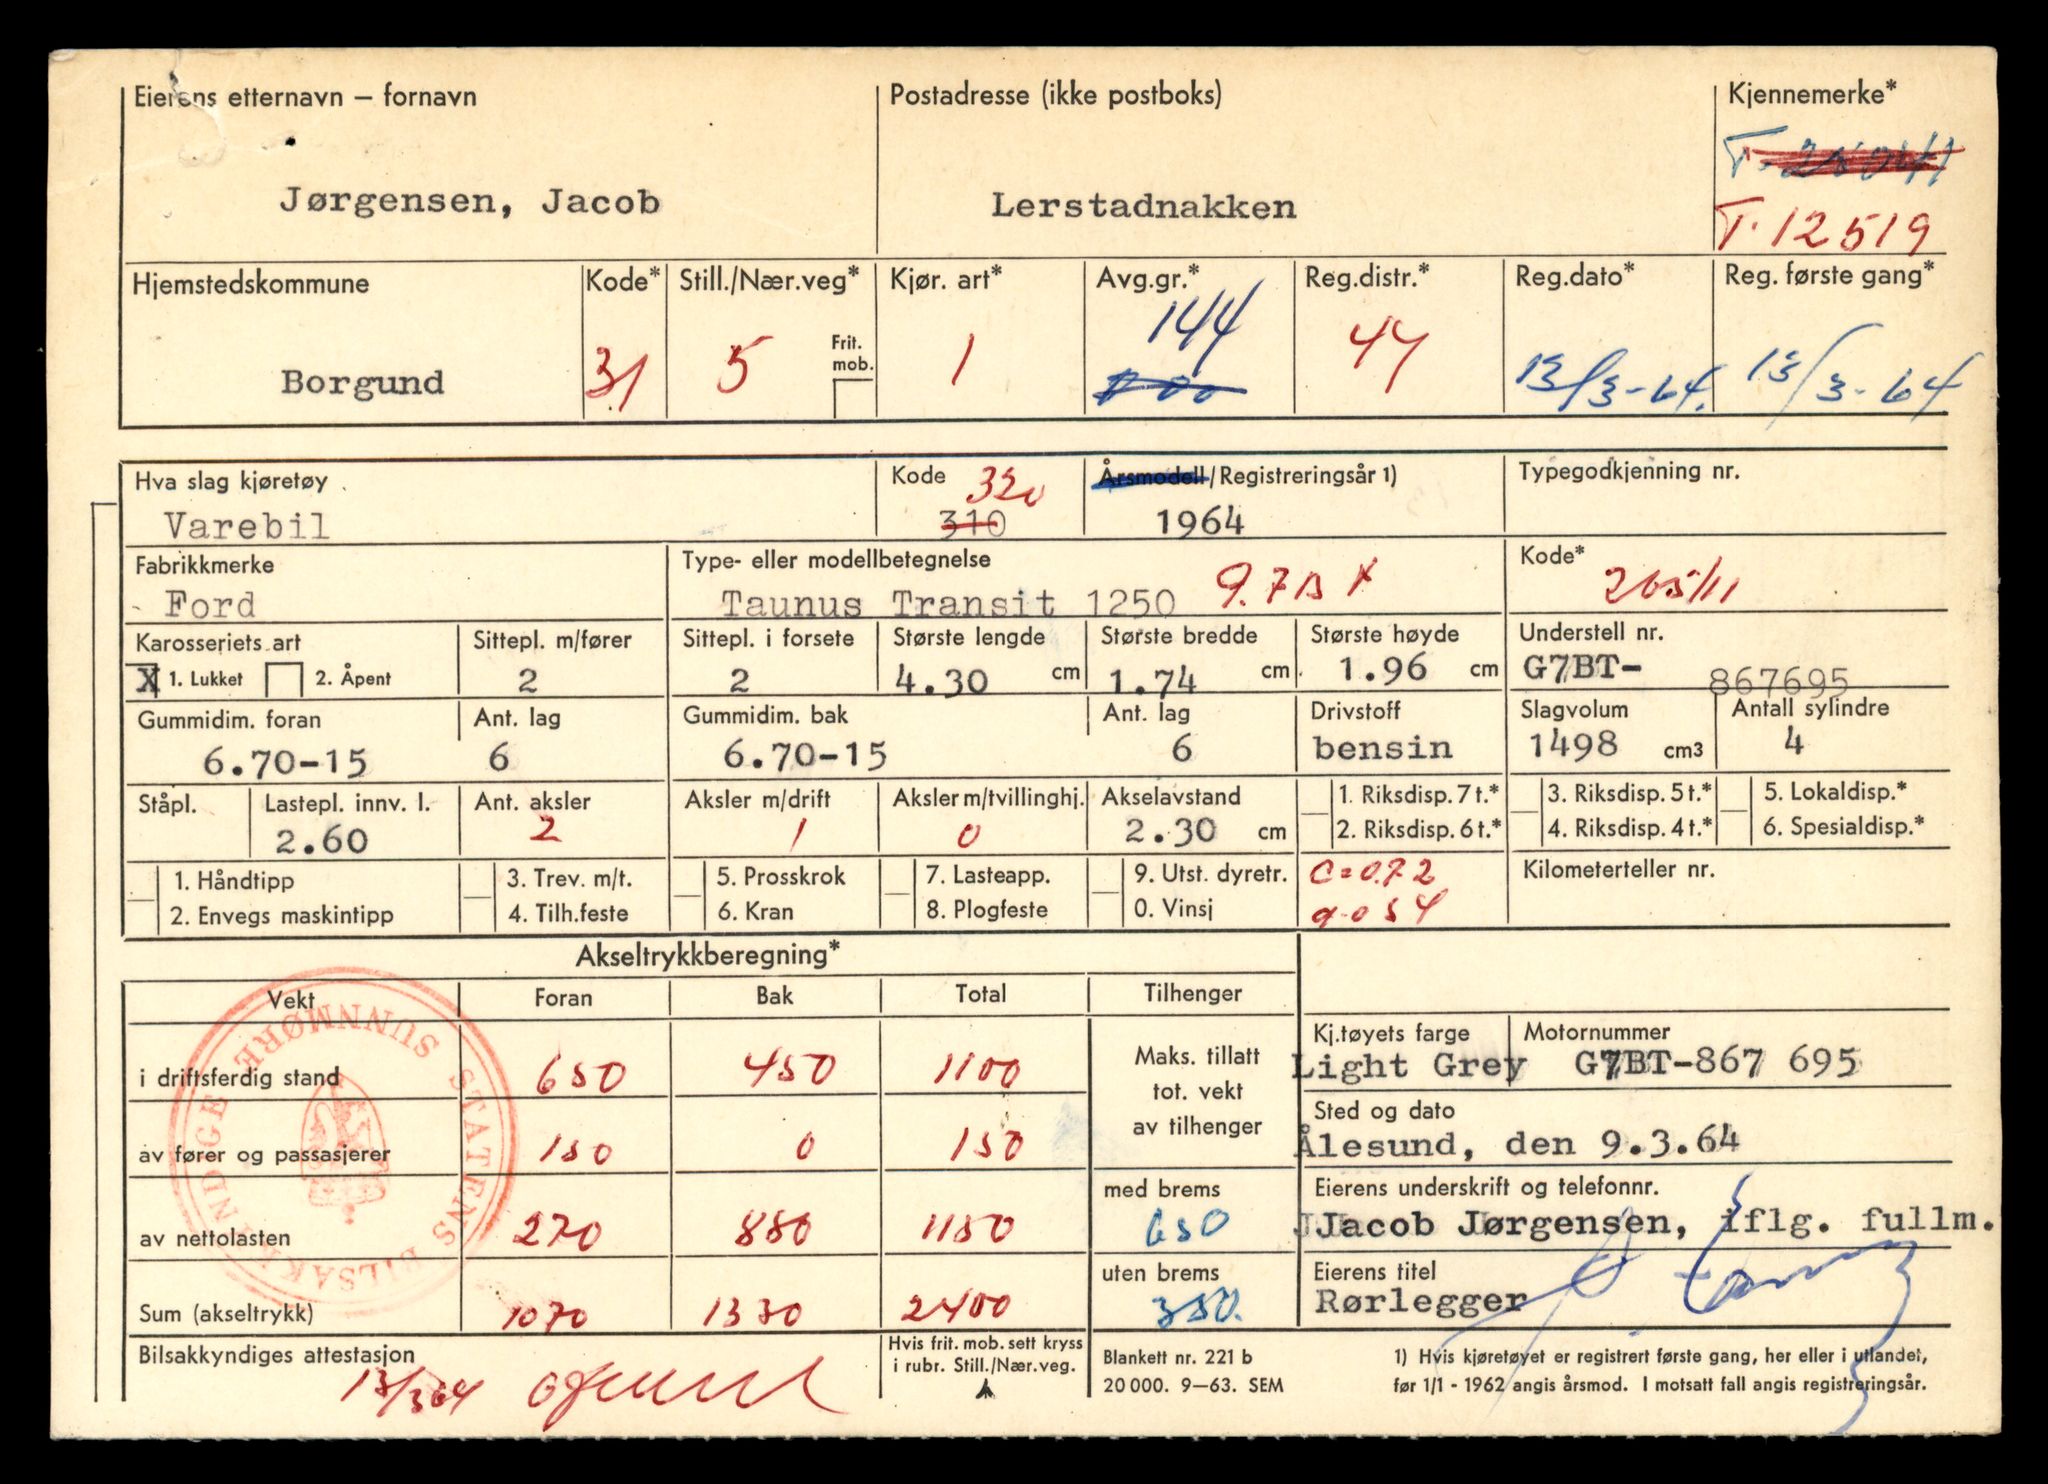 Eierens etternavn – fornavn
Jørgensen, Jacob
Postadresse (ikke postboks)
Lerstadnakken
Kjennemerke*
T. 12519
Hjemstedskommune
Borgund
Kode*
31
Still./Nær.veg*
5
Frit. mob.
Kjør. art*
1
Avg.gr.*
144
Reg.distr.*
47
Reg.dato*
13/3-64.
Reg. første gang*
13/3-64
Hva slag kjøretøy
Varebil
Kode
320
310
Årsmodell/Registreringsår 1)
1964
Typegodkjenning nr.
Fabrikkmerke
Ford
Type- eller modellbetegnelse
Taunus Transit 1250
Kode*
205/11
Karosseriets art
X 1. Lukket 2. Åpent
Sittepl. m/fører
2
Sittepl. i forsete
2
Største lengde
4.30 cm
Største bredde
1.74 cm
Største høyde
1.96 cm
Understell nr.
G7BT- 867695
Gummidim. foran
6.70-15
Ant. lag
6
Gummidim. bak
6.70-15
Ant. lag
6
Drivstoff
bensin
Slagvolum
1498 cm3
Antall sylindre
4
Ståpl.
Lastepl. innv. l.
2.60
Ant. aksler
2
Aksler m/drift
1
Aksler m/tvillinghj.
0
Akselavstand
2.30 cm
1. Riksdisp. 7 t.*
2. Riksdisp. 6 t.*
3. Riksdisp. 5 t.*
4. Riksdisp. 4 t.*
5. Lokaldisp.*
6. Spesialdisp.*
1. Håndtipp
2. Envegs maskintipp
3. Trev. m/t.
4. Tilh.feste
5. Prosskrok
6. Kran
7. Lasteapp.
8. Plogfeste
9. Utst. dyretr.
0. Vinsj
C=0.72
Kilometerteller nr.
Akseltrykkberegning*
Vekt Foran Bak Total Tilhenger
i driftsferdig stand 650 450 1100
Maks. tillatt
tot. vekt
av tilhenger
av fører og passasjerer 150 0 150
av nettolasten 270 880 1150
med brems
650
Sum (akseltrykk) 1070 1330 2400
uten brems
350.
STATENS BILSAKKYNDIGE SUNNMØRE
Kj.tøyets farge
Light Grey
Motornummer
G7BT-867 695
Sted og dato
Ålesund, den 9.3.64
Eierens underskrift og telefonnr.
Jacob Jørgensen, iflg. fullm.
Eierens titel
Rørlegger
Bilsakkyndiges attestasjon
13/3 64
Hvis frit. mob. sett kryss
i rubr. Still./Nær.veg.
Blankett nr. 221 b
20 000. 9–63. SEM
1) Hvis kjøretøyet er registrert første gang, her eller i utlandet,
før 1/1 - 1962 angis årsmod. I motsatt fall angis registreringsår.